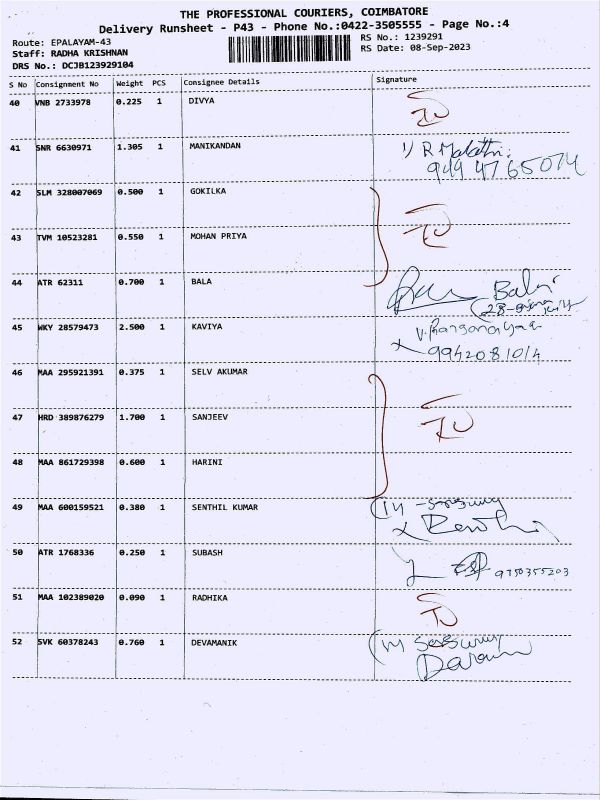 THE PROFESSIONAL COURIERS, COIMBATORE
Delivery Runsheet - P43 - Phone No.:0422-3505555 - Page No.:4
Route: EPALAYAM-43 RS No.: 1239291
Staff: RADHA KRISHNAN RS Date: 08-Sep-2023
DRS No.: DCJB123929104
S No Consignment No Weight PCS Consignee Details Signature
40 VNB 2733978 0.225 1 DIVYA
41 SNR 6630971 1.305 1 MANIKANDAN 1) R Malathi.
42 SLM 328007069 0.500 1 GOKILKA
43 TVM 10523281 0.550 1 MOHAN PRIYA
44 ATR 62311 0.700 1 BALA Bala
45 WKY 28579473 2.500 1 KAVIYA
9942081014
46 MAA 295921391 0.375 1 SELV AKUMAR
47 HRD 389876279 1.700 1 SANJEEV
48 MAA 861729398 0.600 1 HARINI
49 MAA 600159521 0.380 1 SENTHIL KUMAR
50 ATR 1768336 0.250 1 SUBASH 9750355203
51 MAA 102389020 0.090 1 RADHIKA
52 SVK 60378243 0.760 1 DEVAMANIK